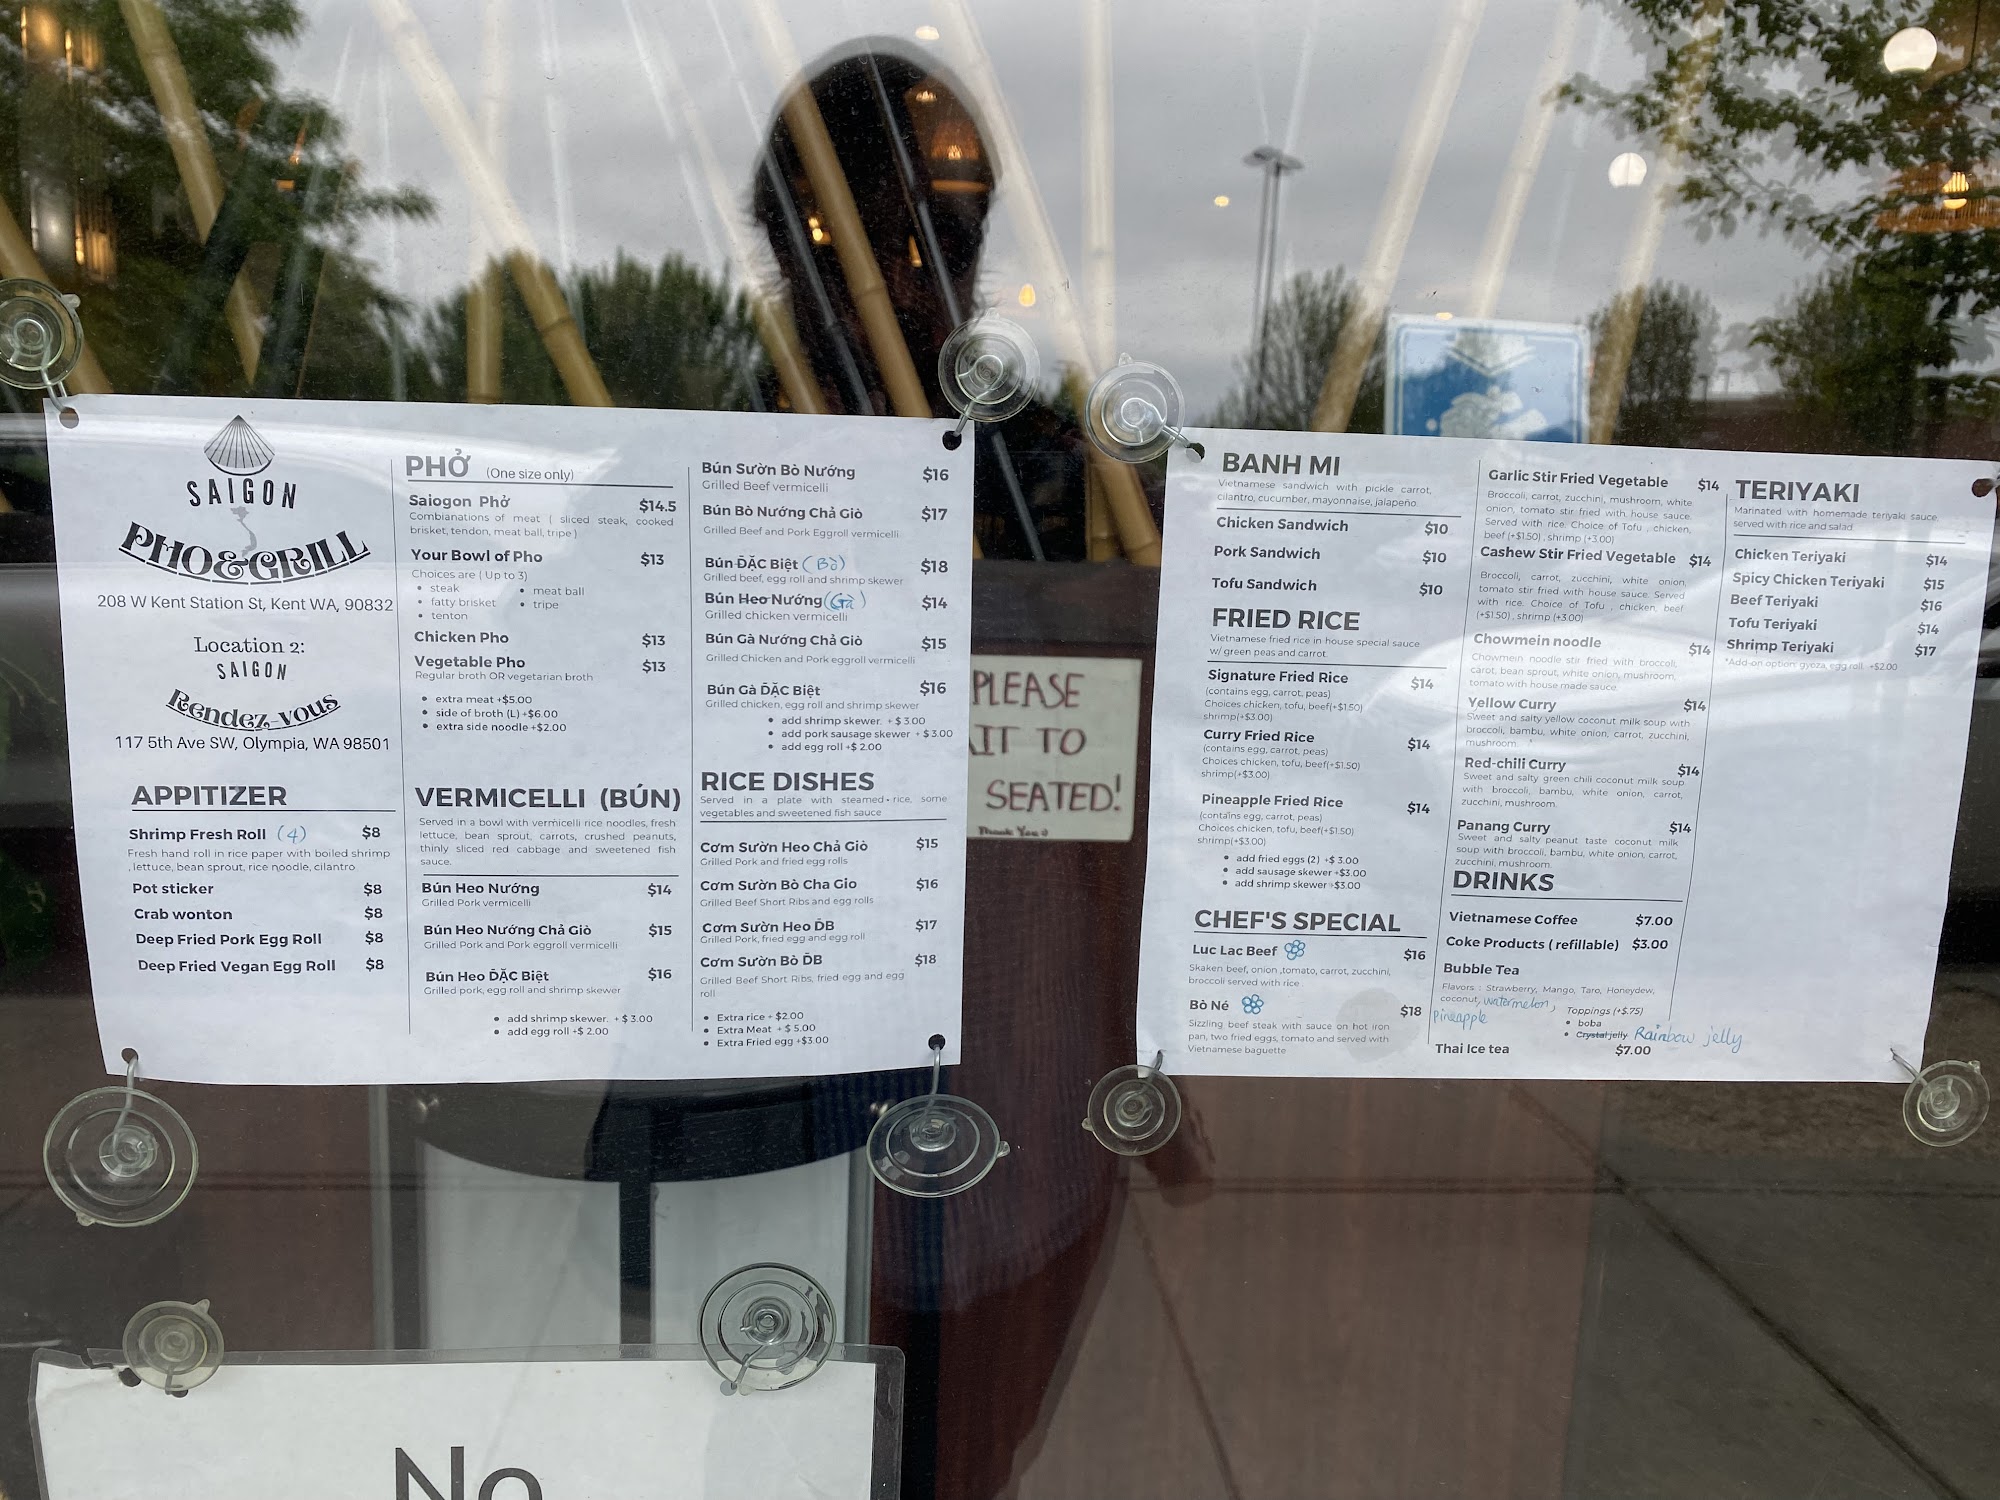 SAIGON
PHO&GRILL
208 W Kent Station St, Kent WA, 90832
Location 2:
SAIGON
Rendez-vous
117 5th Ave SW, Olympia, WA 98501
APPITIZER
Shrimp Fresh Roll (4) $8
Fresh hand roll in rice paper with boiled shrimp
, lettuce, bean sprout, rice noodle, cilantro
Pot sticker $8
Crab wonton $8
Deep Fried Pork Egg Roll $8
Deep Fried Vegan Egg Roll $8
PHỞ (One size only)
Saiogon Phở $14.5
Combianations of meat ( sliced steak, cooked
brisket, tendon, meat ball, tripe )
Your Bowl of Pho $13
Choices are ( Up to 3)
• steak
• fatty brisket
• tenton
• meat ball
• tripe
Chicken Pho $13
Vegetable Pho $13
Regular broth OR vegetarian broth
• extra meat +$5.00
• side of broth (L) +$6.00
• extra side noodle +$2.00
VERMICELLI (BÚN)
Served in a bowl with vermicelli rice noodles, fresh
lettuce, bean sprout, carrots, crushed peanuts,
thinly sliced red cabbage and sweetened fish
sauce.
Bún Heo Nướng $14
Grilled Pork vermicelli
Bún Heo Nướng Chả Giò $15
Grilled Pork and Pork eggroll vermicelli
Bún Heo ĐẶC Biệt $16
Grilled pork, egg roll and shrimp skewer
• add shrimp skewer. + $ 3.00
• add egg roll +$ 2.00
Bún Sườn Bò Nướng $16
Grilled Beef vermicelli
Bún Bò Nướng Chả Giò $17
Grilled Beef and Pork Eggroll vermicelli
Bún ĐẶC Biệt (Bò) $18
Grilled beef, egg roll and shrimp skewer
Bún Heo Nướng (Gà) $14
Grilled chicken vermicelli
Bún Gà Nướng Chả Giò $15
Grilled Chicken and Pork eggroll vermicelli
Bún Gà ĐẶC Biệt $16
Grilled chicken, egg roll and shrimp skewer
• add shrimp skewer. + $ 3.00
• add pork sausage skewer + $ 3.00
• add egg roll +$ 2.00
RICE DISHES
Served in a plate with steamed rice, some
vegetables and sweetened fish sauce
Cơm Sườn Heo Chả Giò $15
Grilled Pork and fried egg rolls
Cơm Sườn Bò Cha Gio $16
Grilled Beef Short Ribs and egg rolls
Cơm Sườn Heo ĐB $17
Grilled Pork, fried egg and egg roll
Cơm Sườn Bò ĐB $18
Grilled Beef Short Ribs, fried egg and egg
roll
• Extra rice + $2.00
• Extra Meat + $ 5.00
• Extra Fried egg +$3.00
PLEASE
IT TO
SEATED!
Thank You :)
BANH MI
Vietnamese sandwich with pickle carrot,
cilantro, cucumber, mayonnaise, jalapeño
Chicken Sandwich $10
Pork Sandwich $10
Tofu Sandwich $10
FRIED RICE
Vietnamese fried rice in house special sauce
w/ green peas and carrot.
Signature Fried Rice $14
(contains egg, carrot, peas)
Choices chicken, tofu, beef(+$1.50)
shrimp(+$3.00)
Curry Fried Rice $14
(contains egg, carrot, peas)
Choices chicken, tofu, beef(+$1.50)
shrimp(+$3.00)
Pineapple Fried Rice $14
(contains egg, carrot, peas)
Choices chicken, tofu, beef(+$1.50)
shrimp(+$3.00)
• add fried eggs (2) +$ 3.00
• add sausage skewer +$3.00
• add shrimp skewer +$3.00
CHEF'S SPECIAL
Luc Lac Beef $16
Skaken beef, onion ,tomato, carrot, zucchini,
broccoli served with rice
Bò Né $18
Sizzling beef steak with sauce on hot iron
pan, two fried eggs, tomato and served with
Vietnamese baguette
Garlic Stir Fried Vegetable $14
Broccoli, carrot, zucchini, mushroom, white
onion, tomato stir fried with house sauce.
Served with rice. Choice of Tofu , chicken,
beef (+$1.50) , shrimp (+3.00)
Cashew Stir Fried Vegetable $14
Broccoli, carrot, zucchini, white onion,
tomato stir fried with house sauce. Served
with rice. Choice of Tofu , chicken, beef
(+$1.50) , shrimp (+3.00)
Chowmein noodle $14
Chowmein noodle stir fried with broccoli,
carot, bean sprout, white onion, mushroom,
tomato with house made sauce.
Yellow Curry $14
Sweet and salty yellow coconut milk soup with
broccoli, bambu, white onion, carrot, zucchini,
mushroom.
Red-chili Curry $14
Sweet and salty green chili coconut milk soup
with broccoli, bambu, white onion, carrot,
zucchini, mushroom.
Panang Curry $14
Sweet and salty peanut taste coconut milk
soup with broccoli, bambu, white onion, carrot,
zucchini, mushroom.
DRINKS
Vietnamese Coffee $7.00
Coke Products ( refillable) $3.00
Bubble Tea
Flavors : Strawberry, Mango, Taro, Honeydew,
coconut, watermelon,
Pineapple
Toppings (+$.75)
• boba
• Crystal jelly Rainbow jelly
Thai Ice tea $7.00
TERIYAKI
Marinated with homemade teriyaki sauce,
served with rice and salad
Chicken Teriyaki $14
Spicy Chicken Teriyaki $15
Beef Teriyaki $16
Tofu Teriyaki $14
Shrimp Teriyaki $17
*Add-on option: gyoza, egg roll +$2.00
No